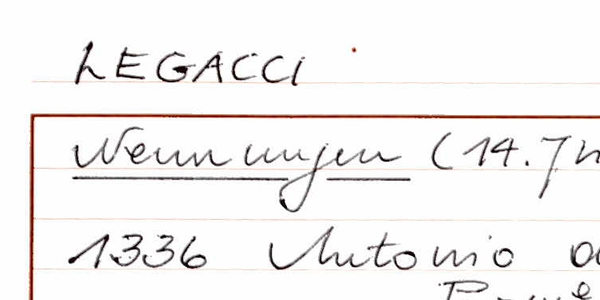 LEGACCI
Nennungen (14. Jh
1336 Antonio d